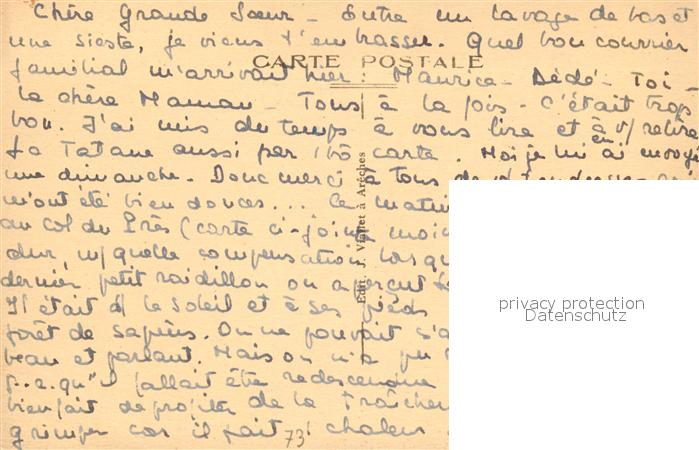 Chère Grande Sœur - Entre un lavage de bas et
une sieste, je viens t'embrasser. Quel bon courrier
CARTE POSTALE
familial m'arrivait hier : Maurice - Dédé - Toi -
la chère Maman - Tous à la fois - C'était trop
bon. J'ai mis du temps à vous lire et à v/ relire
La Tatane aussi par 1 carte. Moi je lui en ai envoyé
une dimanche. Donc merci à tous de
m'ont été bien douces... Ce matin
au col du Prés (carte ci-jointe moin
dur, m/ quelle compensation lorsqu
dernier petit raidillon on aperçut
Il était ds le soleil et à ses pieds
forêt de sapins. On ne pouvait s'a
beau et parlant. Mais on n'a pu
p.c.qu'il fallait être redescendue
bien fait de profiter de la fraîcheur
grimper car il fait 1 chaleur
73
Edit. J. Viallet à Arêches
privacy protection
Datenschutz